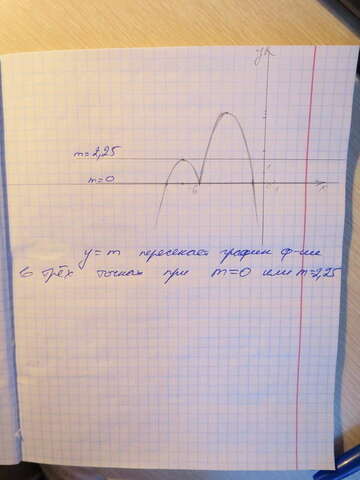 y
m=2,25
m=0
-6
x
y=m пересекает график ф-ии
в трёх точках при m=0 или m=2,25